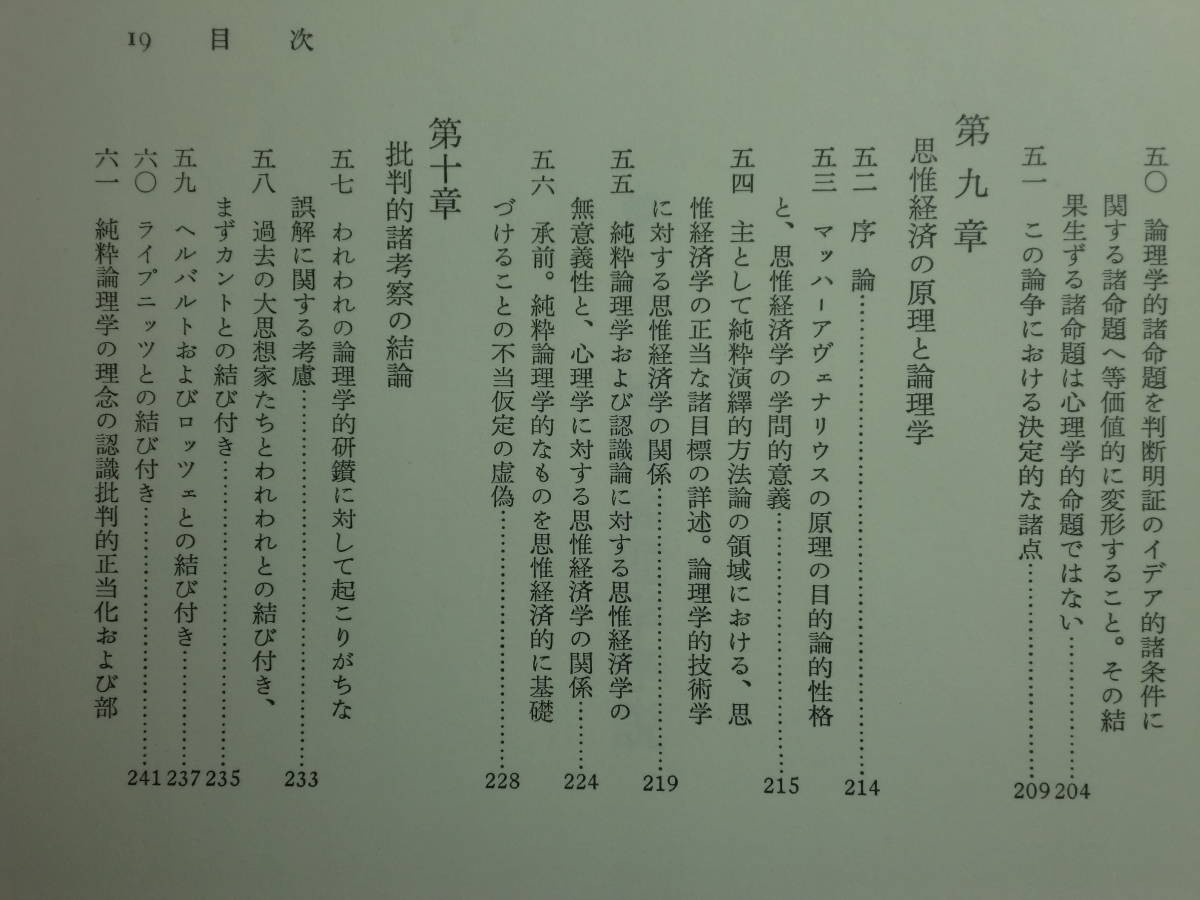 19 目次
五〇 論理学的諸命題を判断明証のイデア的諸条件に
関する諸命題へ等価値的に変形すること。その結
果生ずる諸命題は心理学的命題ではない……………204
五一 この論争における決定的な諸点……………209
第九章
思惟経済の原理と論理学
五二 序論……………214
五三 マッハ―アヴェナリウスの原理の目的論的性格
と、思惟経済学の学問的意義……………215
五四 主として純粋演繹的方法論の領域における、思
惟経済学の正当な諸目標の詳述。論理学的技術学
に対する思惟経済学の関係……………219
五五 純粋論理学および認識論に対する思惟経済学の
無意義性と、心理学に対する思惟経済学の関係……224
五六 承前。純粋論理学的なものを思惟経済的に基礎
づけることの不当仮定の虚偽……………228
第十章
批判的諸考察の結論
五七 われわれの論理学的研鑽に対して起こりがちな
誤解に関する考慮……………233
五八 過去の大思想家たちとわれわれとの結び付き、
まずカントとの結び付き……………235
五九 ヘルバルトおよびロッツェとの結び付き……………237
六〇 ライプニッツとの結び付き……………241
六一 純粋論理学の理念の認識批判的正当化および部